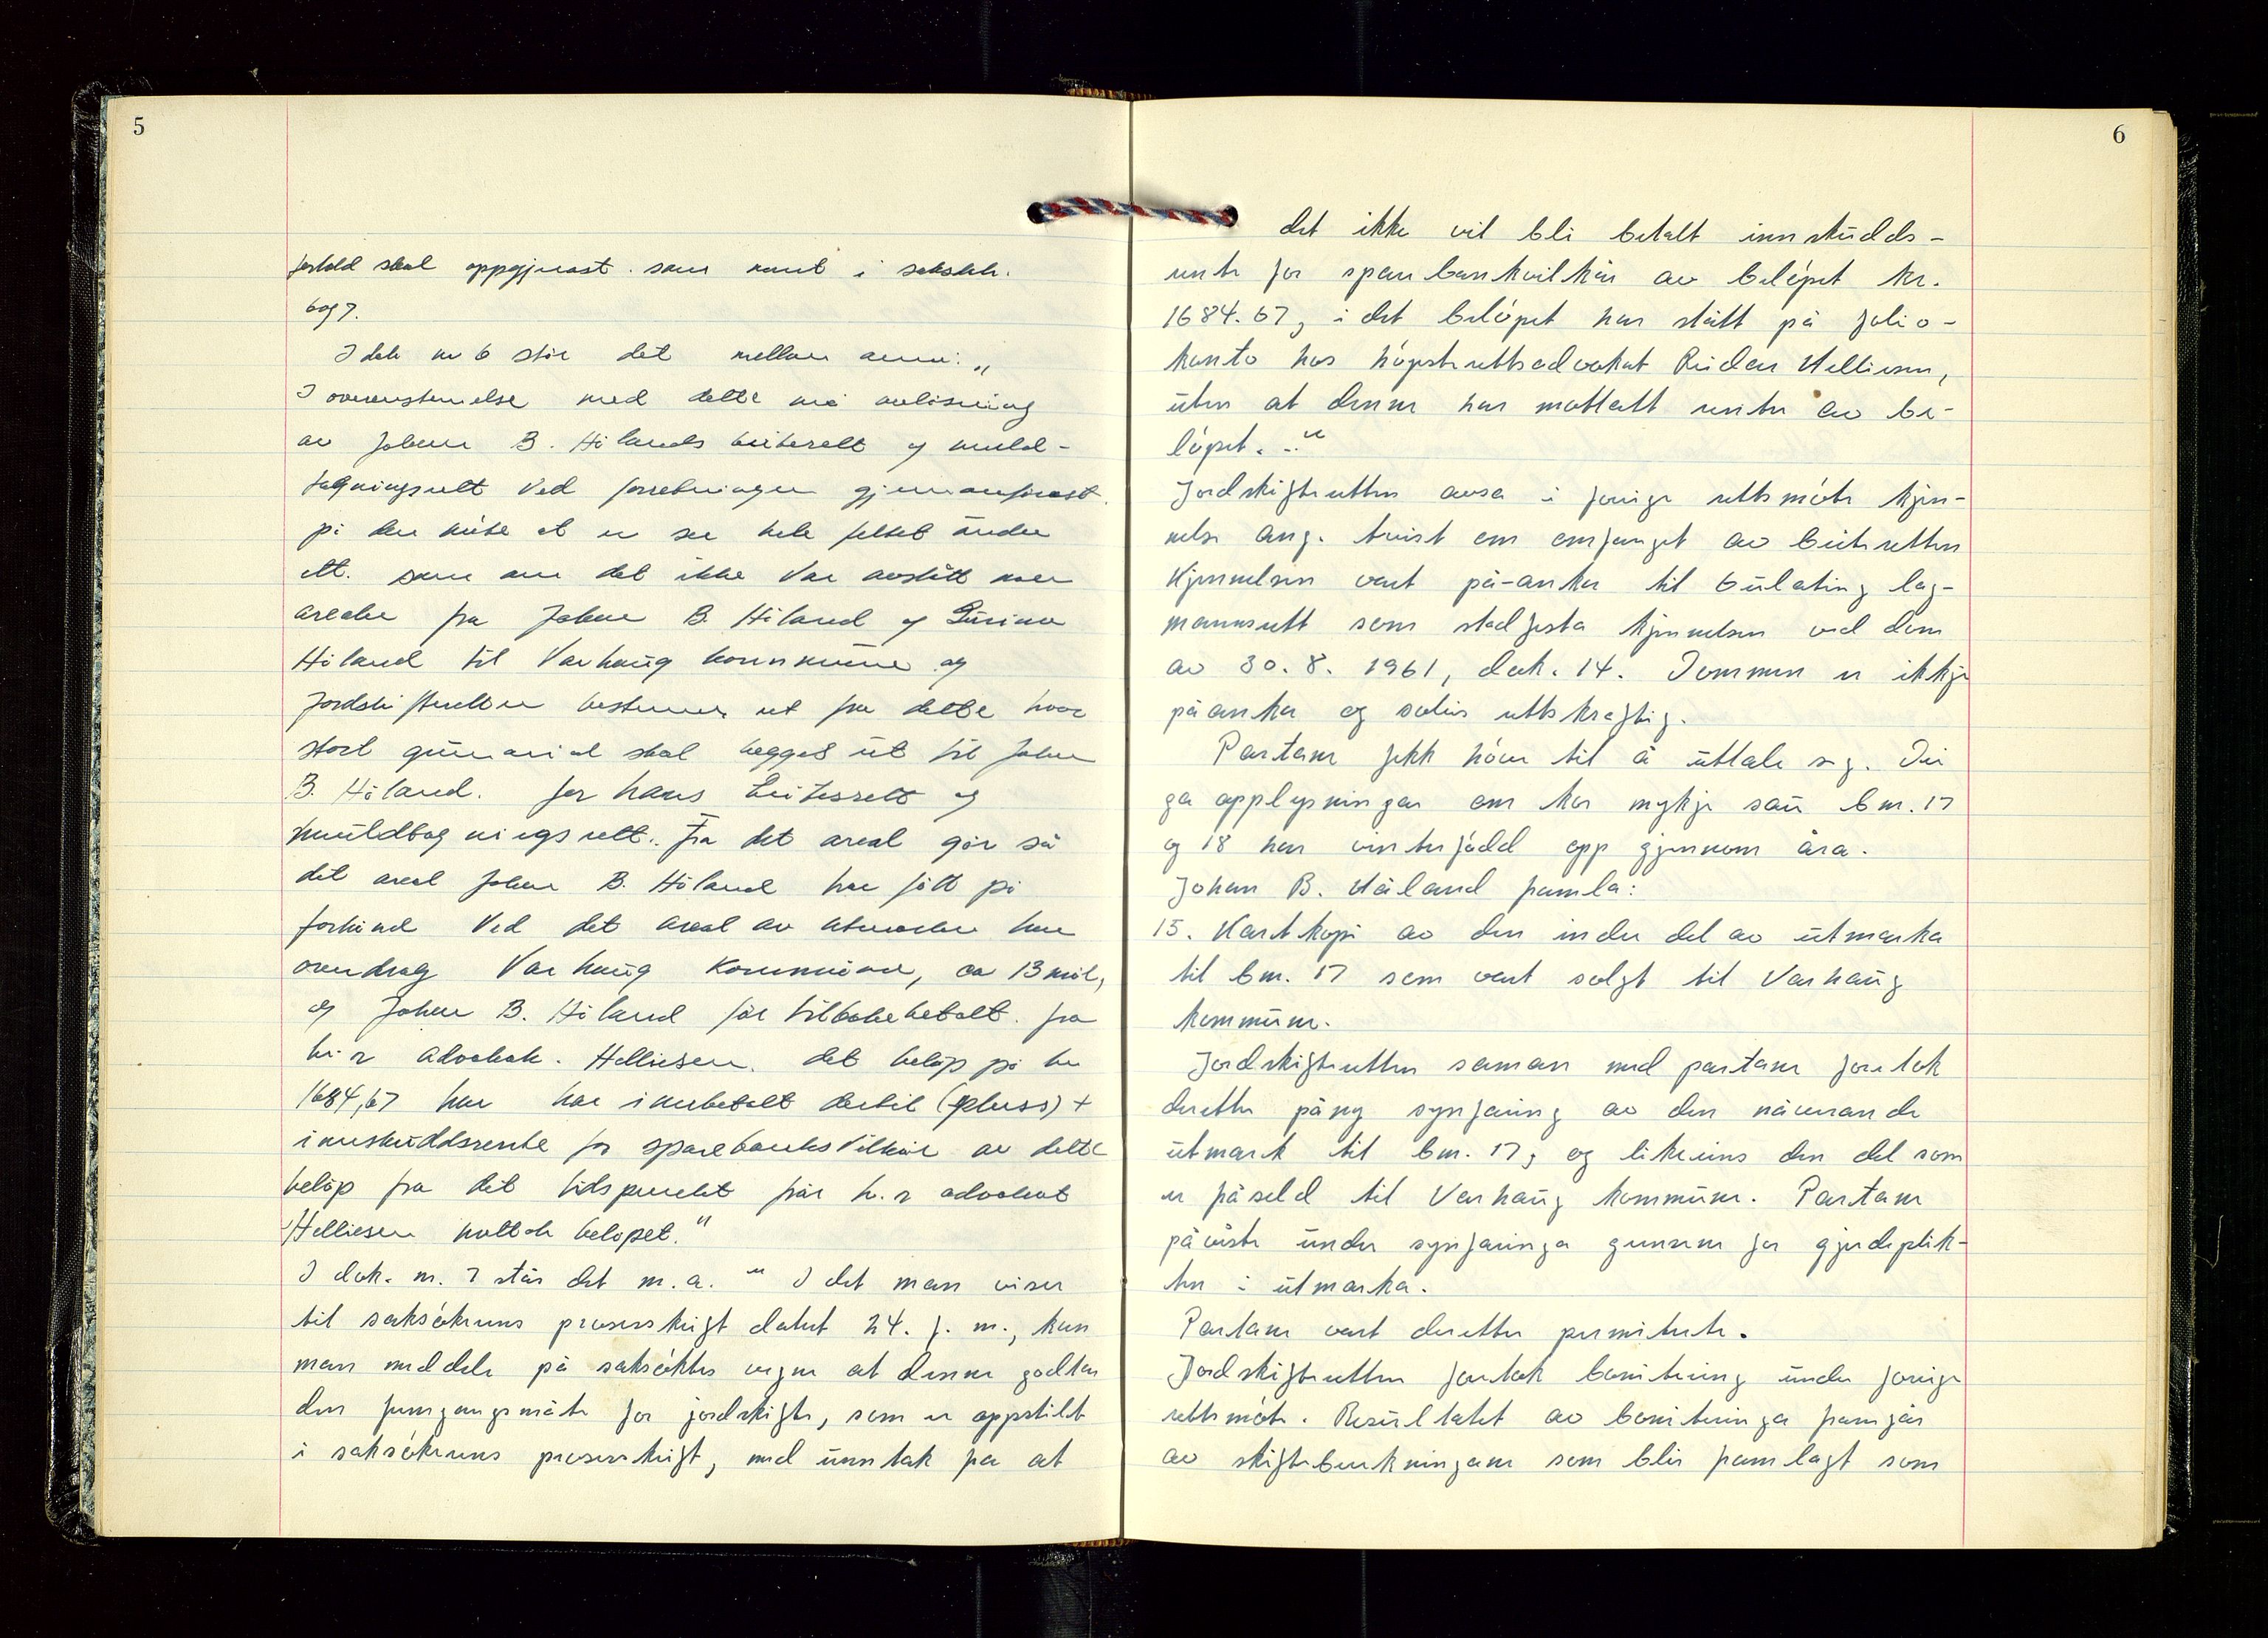 5
forhold skal oppgjerast som nemt i saksdok.
6 og 7.
I dok nr 6 står det mellom anna: "
I overenstemelse med dette må avløsning
av Johan B. Hålands beiterett og muld-
takningsrett ved forretningen gjennomføres
på den måte at en ser hele feltet under
ett. som om det ikke var avstått noen
arealer fra Johan B. Håland og Surine
Håland til Varhaug kommune og
Jordskifteretten bestemmer ut fra dette hvor
stort grunnareal skal legges ut til Johan
B. Håland. for hans beitesrett og
muldtagningsrett. Fra det areal går så
det areal Johan B. Håland har fått på
forhånd ved det areal av utmarken han
overdrag Varhaug Kommune, ca 13 mål,
og Johan B. Håland får tilbakebetalt fra
h.r advokat. Helliesen. det beløp på kr
1684,67 han har innbetalt dertil (pluss) +
innskuddsrente for sparebanksvilkår av dette
beløp fra det tidspunkt når h.r advokat
Helliesen mottok beløpet."
I dok. nr. 7 står det m.a. " I det man viser
til saksøkerens prosesskrift datert 24. f. m., kan
man meddele på saksøktes vegne at denne godtar
den fremgangsmåte for jordskifte, som er oppstilt
i saksøkerens prosesskrift, med unntak for at
6
det ikke vil bli betalt innskudds-
rente for sparebankvilkår av beløpet kr.
1684.67, i det beløpet har stått på folio-
konto hos høgsterettsadvokat Reidar Helliesen,
uten at denne har mottatt renter av be-
løpet. -"
Jordskifteretten avsa i forrige rettsmøte kjen-
nelse ang. tvist om omfanget av beiteretten
Kjennelsen vart på-anka til Gulating lag-
mannsrett som stadfesta kjennelsen ved dom
av 30. 8. 1961, dok. 14. Dommen er ikkje
påanka og såleis rettskraftig.
Partane fekk høve til å uttale seg. Dei
ga opplysningar om kor mykje sau bnr. 17
og 18 har vinterfødd opp gjennom åra.
Johan B. Håland framla:
15. Kartkopi av den indre del av utmarka
til bnr. 17 som vart solgt til Varhaug
kommune.
Jordskifteretten saman med partane foretok
deretter påny synfaring av den nåverande
utmark til bnr. 17, og likeeins den del som
er fråseld til Varhaug kommune. Partane
påviste under synfaringa grensene for gjerdeplik-
ten i utmarka.
Partane vart deretter permiterte.
Jordskifteretten foretok bonitering under forrige
rettsmøte. Resultatet av boniteringa framgår
av skifteberekningane som blir framlagt som